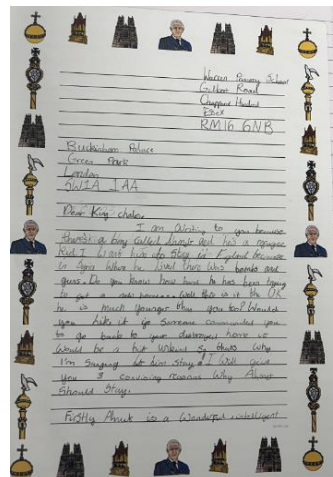 Warren Primary School
Gilbert Road
Chafford Hundred
Essex
RM16 6NB
Buckingham Palace
Green Park
London
SW1A 1AA
Dear King
I am writing to you because
a boy called and he's a refugee
And I want him to stay in England because
in Syria where he lived there was bombs and
guns. Do you know how hard he has been trying
to get a new home? Well this is it the UK
he is much younger than you too? Would
you like it if someone commanded you
to go back to your destroyed home it
would be a bit unkind so that's why
I'm saying let him stay. I will give
you 3 reasons why
should stay.
Firstly is a wonderful intelligent